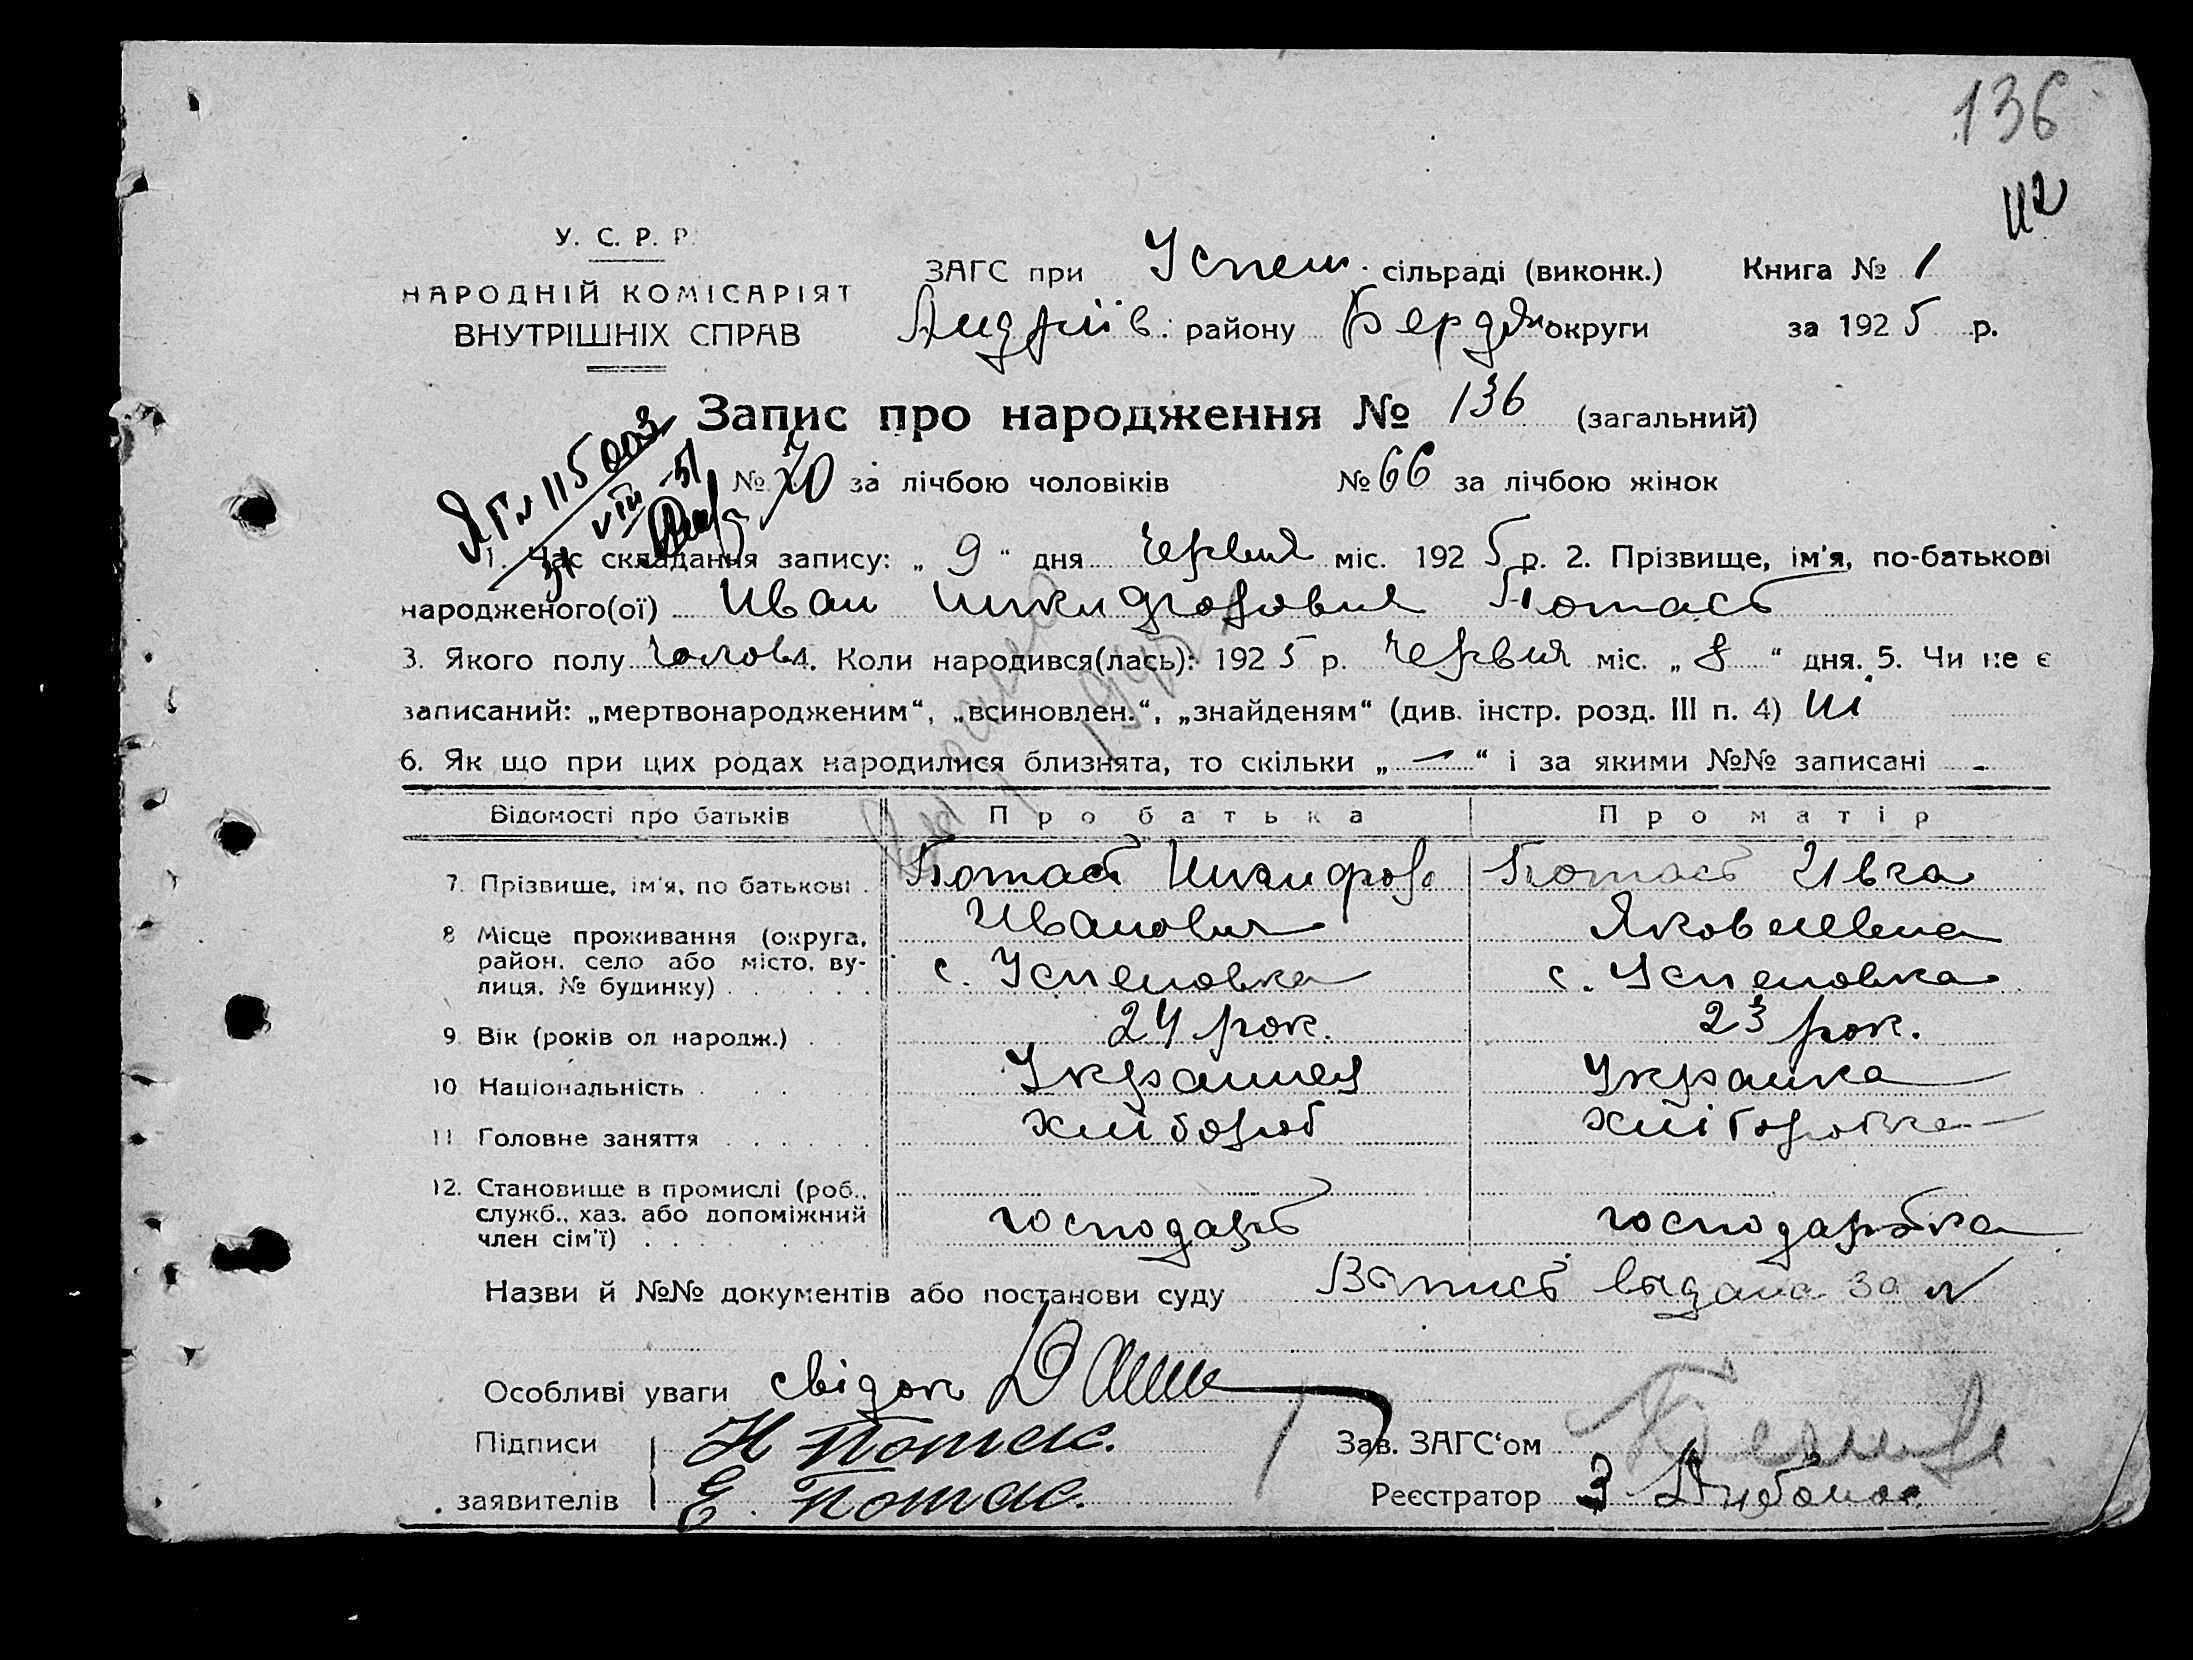 136
112
У. С. Р. Р.
НАРОДНІЙ КОМІСАРІЯТ
ВНУТРІШНІХ СПРАВ
ЗАГС при Успен. сільраді (виконк.) Книга № 1
Андріїв. району Бердян округи за 1925 р.
Запис про народження № 136 (загальний)
№ 70 за лічбою чоловіків № 66 за лічбою жінок
115003
31 VIII 51
1. Час складання запису: „ 9 “ дня Червня міс. 1925 р. 2. Прізвище, ім'я, по-батькові
народженого(ої) Иван Никифорович Потась
3. Якого полу Чолов. 4. Коли народився(лась): 1925 р. Червня міс. „ 8 “ дня. 5. Чи не є
записаний: „мертвонародженим“, „всиновлен.“, „знайденям“ (див. інстр. розд. III п. 4) Ні
6. Як що при цих родах народилися близнята, то скільки „ — “ і за якими №№ записані -
Відомості про батьків Про батька Про матір
7. Прізвище, ім'я, по батькові . Потась Никифор Потась Ивга
Иванович Яковлевна
8 Місце проживання (округа,
район, село або місто, ву-
лиця, № будинку) . . . . . с. Успеновка с. Успеновка
9. Вік (років од народж.) . . 24 рок. 23 рок.
10 Національність . . . . Украинец Украинка
11 Головне заняття . . . . . хлібороб хліборобка
12. Становище в промислі (роб.,
служб., хаз. або допоміжний
член сім'ї) . . господарь господарька
Назви й №№ документів або постанови суду Вопись выдана за №
Особливі уваги свідок
Підписи Н Потас.
заявителів Е. Потас.
Зав. ЗАГС'ом
Реєстратор